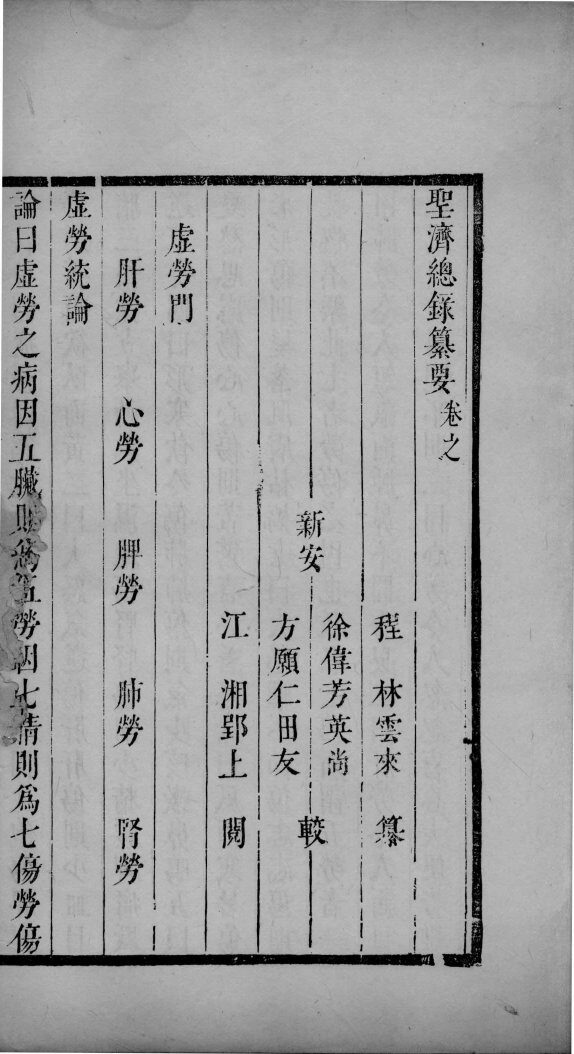 聖濟總錄纂要卷之
程林雲來纂
新安
徐偉芳英尚
方願仁田友
較
江湘郢上閱
虛勞門
肝勞 心勞 脾勞 肺勞 腎勞
虛勞統論
論曰虛勞之病因五臟則為五勞因七情則爲七傷勞傷